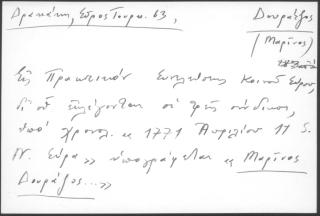 Δρακάκη, Σύρος Τουρκ. 63,
Δουράτζος
(Μαρῖνος)
Εἰς Πρακτικὸν Συνελεύσης Κοινοῦ Σύρου,
δι' οὗ ἐκλέγονται οἱ τρεῖς σύνδικοι,
ὑπὸ χρονολ. «1771 Ἀπριλίου 11 S.
N. Σύρα» ὑπογράφεται «Μαρῖνος
Δουράτζος...»